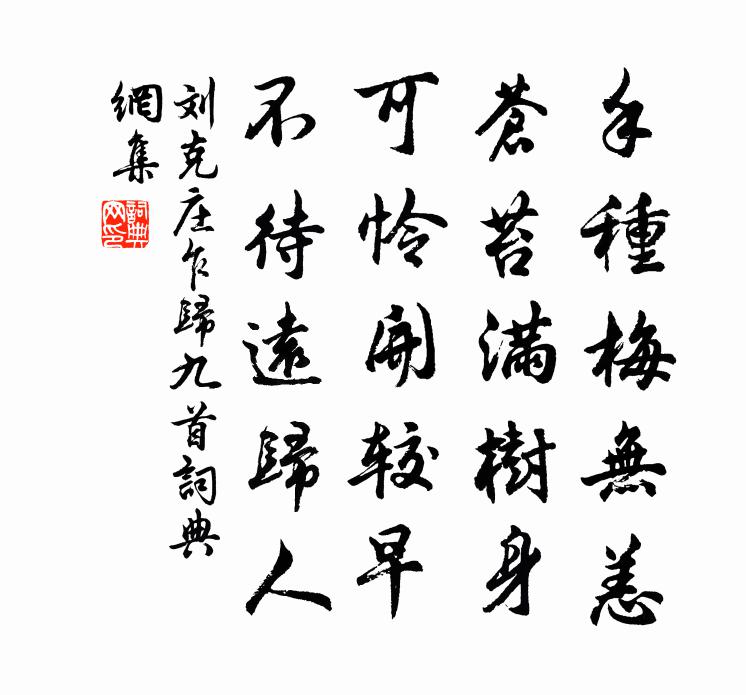 手種梅無恙
蒼苔滿樹身
可怜開较早
不待遠歸人
刘克庄乍歸九首詞典
網集
詞典網印